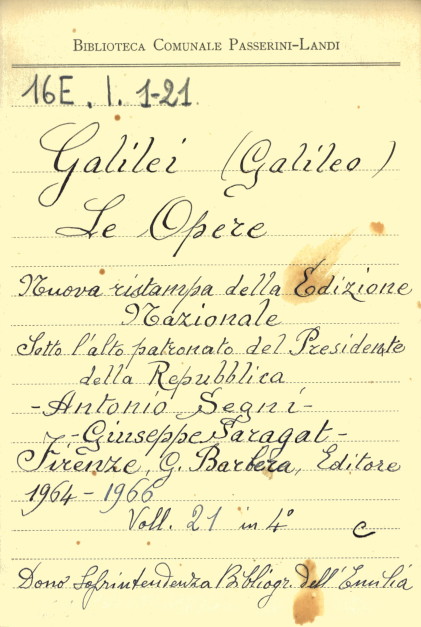 BIBLIOTECA COMUNALE PASSERINI-LANDI
16E. I. 1-21
Galilei (Galileo)
Le Opere
Nuova ristampa della Edizione
Nazionale
Sotto l'alto patronato del Presidente
della Repubblica
-Antonio Segni-
-Giuseppe Saragat-
Firenze, G. Barbèra, Editore
1964-1966
Voll. 21 in 4° C
Dono Sofrintendenza Bibliogr. dell'Emilia